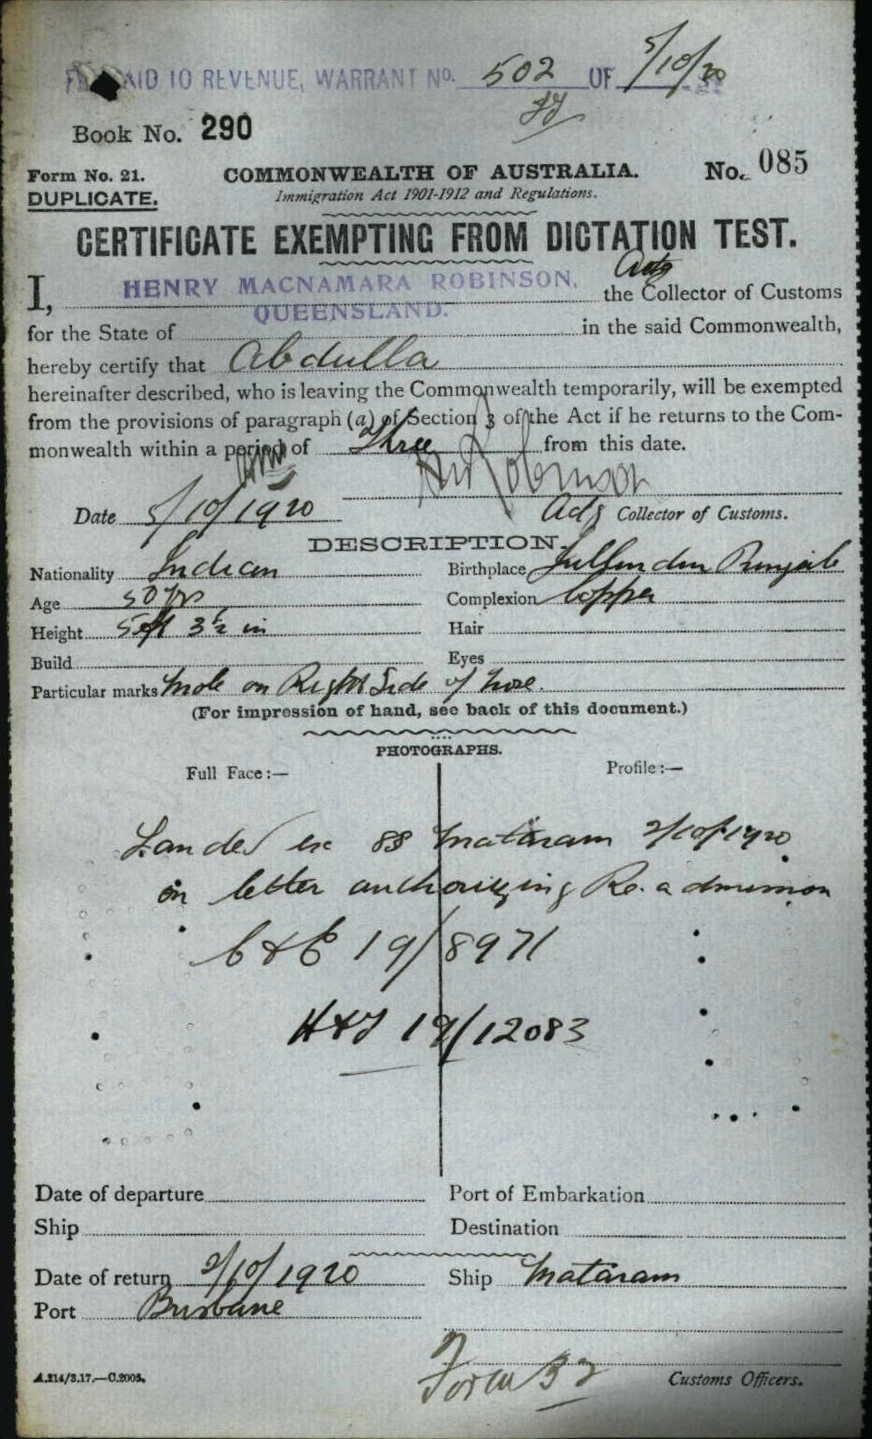 PAID TO REVENUE, WARRANT No. 502 OF 5/10/20
Book No. 290
Form No. 21. COMMONWEALTH OF AUSTRALIA. No. 085
DUPLICATE. Immigration Act 1901-1912 and Regulations.
CERTIFICATE EXEMPTING FROM DICTATION TEST.
I, HENRY MACNAMARA ROBINSON, Actg the Collector of Customs
for the State of QUEENSLAND. in the said Commonwealth,
hereby certify that Abdulla
hereinafter described, who is leaving the Commonwealth temporarily, will be exempted
from the provisions of paragraph (a) of Section 3 of the Act if he returns to the Com-
monwealth within a period of Three from this date.
HM Robinson
Date 5/10/1920 Actg Collector of Customs.
DESCRIPTION.
Nationality Indian Birthplace Jullundur Punjab
Age 50 yrs Complexion Copper
Height 5 ft 3½ in Hair
Build Eyes
Particular marks Mole on Right Side of Nose.
(For impression of hand, see back of this document.)
PHOTOGRAPHS.
Full Face:— Profile:—
Landed ex SS Mataram 2/10/1920
on letter authorizing Re. admission
C&E 19/8971
H&T 19/12083
Date of departure Port of Embarkation
Ship Destination
Date of return 2/10/1920 Ship Mataram
Port Brisbane
Form 32
A.214/3.17.—C.2005. Customs Officers.